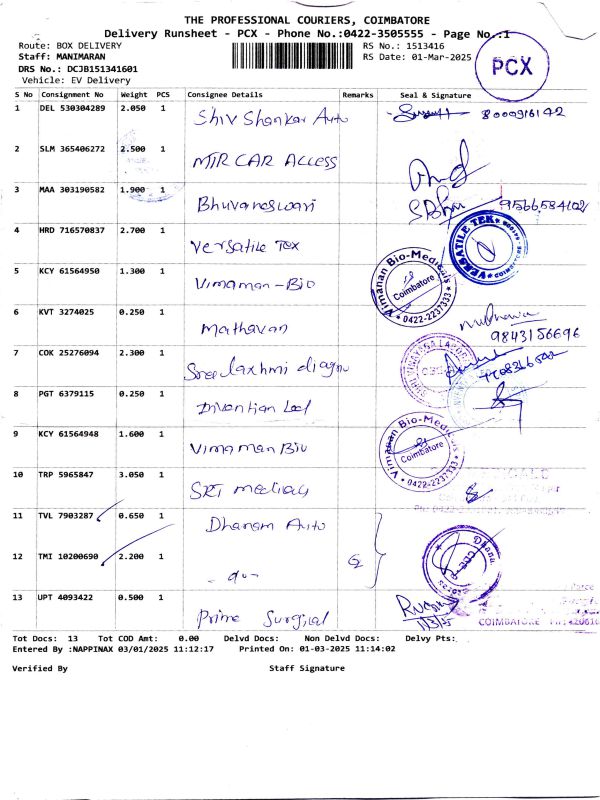 THE PROFESSIONAL COURIERS, COIMBATORE
Delivery Runsheet - PCX - Phone No.:0422-3505555 - Page No.:1
Route: BOX DELIVERY
Staff: MANIMARAN
DRS No.: DCJB151341601
Vehicle: EV Delivery
RS No.: 1513416
RS Date: 01-Mar-2025
PCX
S No Consignment No Weight PCS Consignee Details Remarks Seal & Signature
1 DEL 530304289 2.050 1 Shiv Shankar Auto 8000916142
2 SLM 365406272 2.500 1 MTR CAR ACCESS
3 MAA 303190582 1.900 1 Bhuvaneswari 9566584102
4 HRD 716570837 2.700 1 Versatile Tex VERSATILE TEX COIMBATORE
5 KCY 61564950 1.300 1 Vimaman-Bio Vimanan Bio-Medicals Coimbatore 0422-2237333
6 KVT 3274025 0.250 1 Mathavan 9843156696
7 COK 25276094 2.300 1 Sree laxhmi diagn
8 PGT 6379115 0.250 1
9 KCY 61564948 1.600 1 Vimaman Bio Vimanan Bio-Medicals Coimbatore 0422-2237333
10 TRP 5965847 3.050 1 SRI medicals
11 TVL 7903287 0.650 1 Dhanam Auto
12 TMI 10200690 2.200 1 - do -
13 UPT 4093422 0.500 1 Prime Surgical 1/3/25 COIMBATORE
Tot Docs: 13 Tot COD Amt: 0.00 Delvd Docs: Non Delvd Docs: Delvy Pts:
Entered By :NAPPINAX 03/01/2025 11:12:17 Printed On: 01-03-2025 11:14:02
Verified By Staff Signature